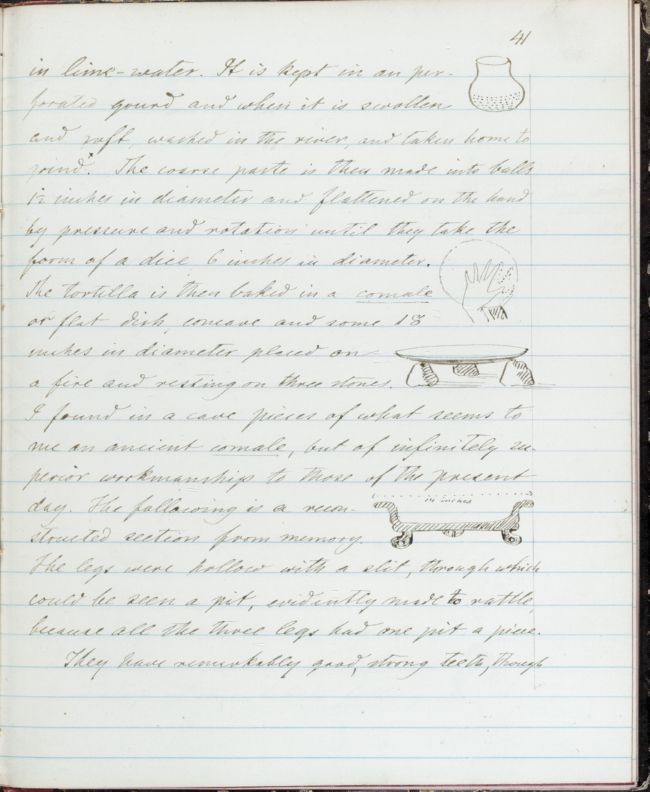 41
in lime-water. It is kept in an per-
forated gourd and when it is swollen
and soft, washed in the river, and taken home to
grind. The coarse paste is then made into balls
1½ inches in diameter and flattened on the hand
by pressure and rotation until they take the
form of a disc 6 inches in diameter.
The tortilla is then baked in a comale
or flat dish, concave and some 18
inches in diameter placed on
a fire and resting on three stones.
I found in a cave pieces of what seems to
me an ancient comale, but of infinitely su-
perior workmanship to those of the present
day. The following is a recon-
in inches
structed section from memory.
The legs were hollow with a slit, through which
could be seen a pit, evidently made to rattle,
because all the three legs had one pit a piece.
They have remarkably good, strong teeth, though